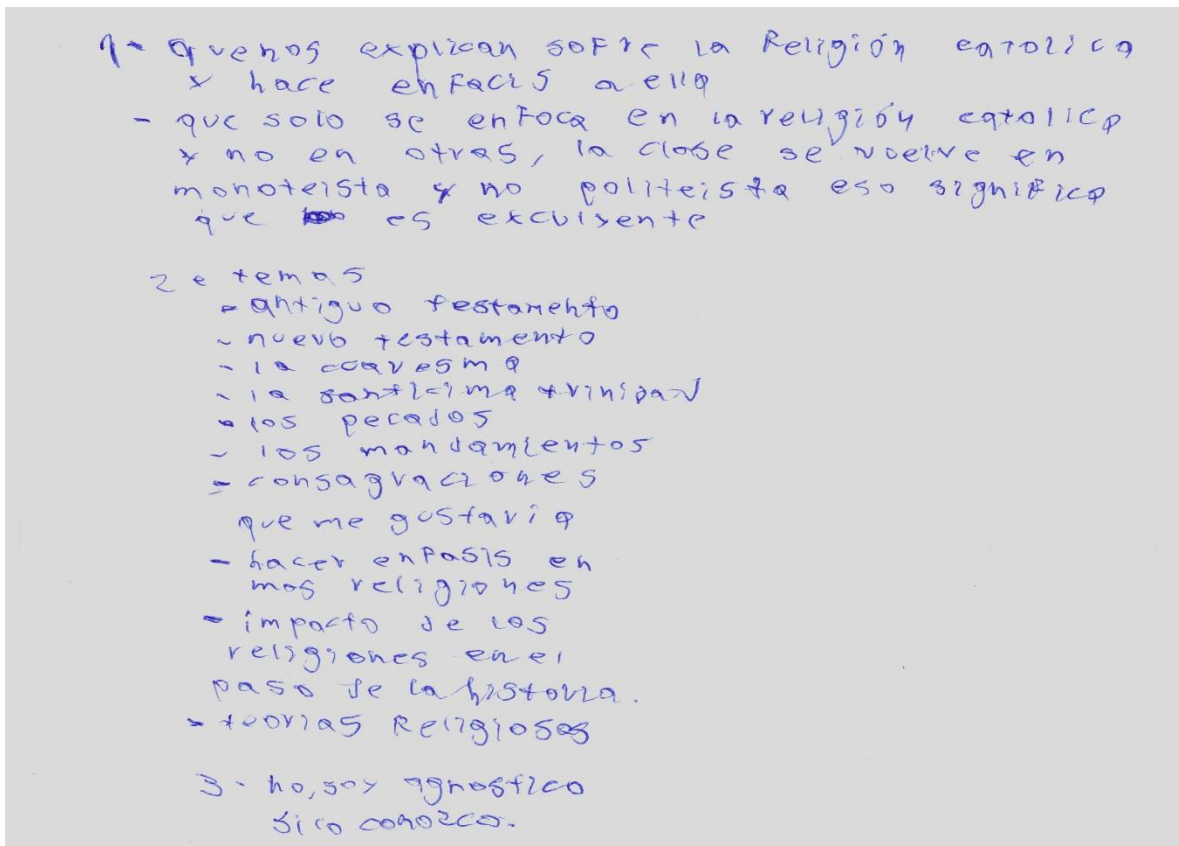 1- que nos explican sofre la Religión catolica
y hace enfacis a ella
- que solo se enfoca en la religión catolica
y no en otras, la clase se vuelve en
monoteista y no politeista eso significa
que es excluyente
2 e temas
- antiguo testamento
- nuevo testamento
- la cuaresma
- la santicima trinidad
- los pecados
- los mandamientos
- consagraciones
que me gustaria
- hacer enfasis en
mas religiones
- impacto de los
religiones en el
paso de la historia.
- teorias Religiosas
3- no, soy agnostico
si lo conozco.